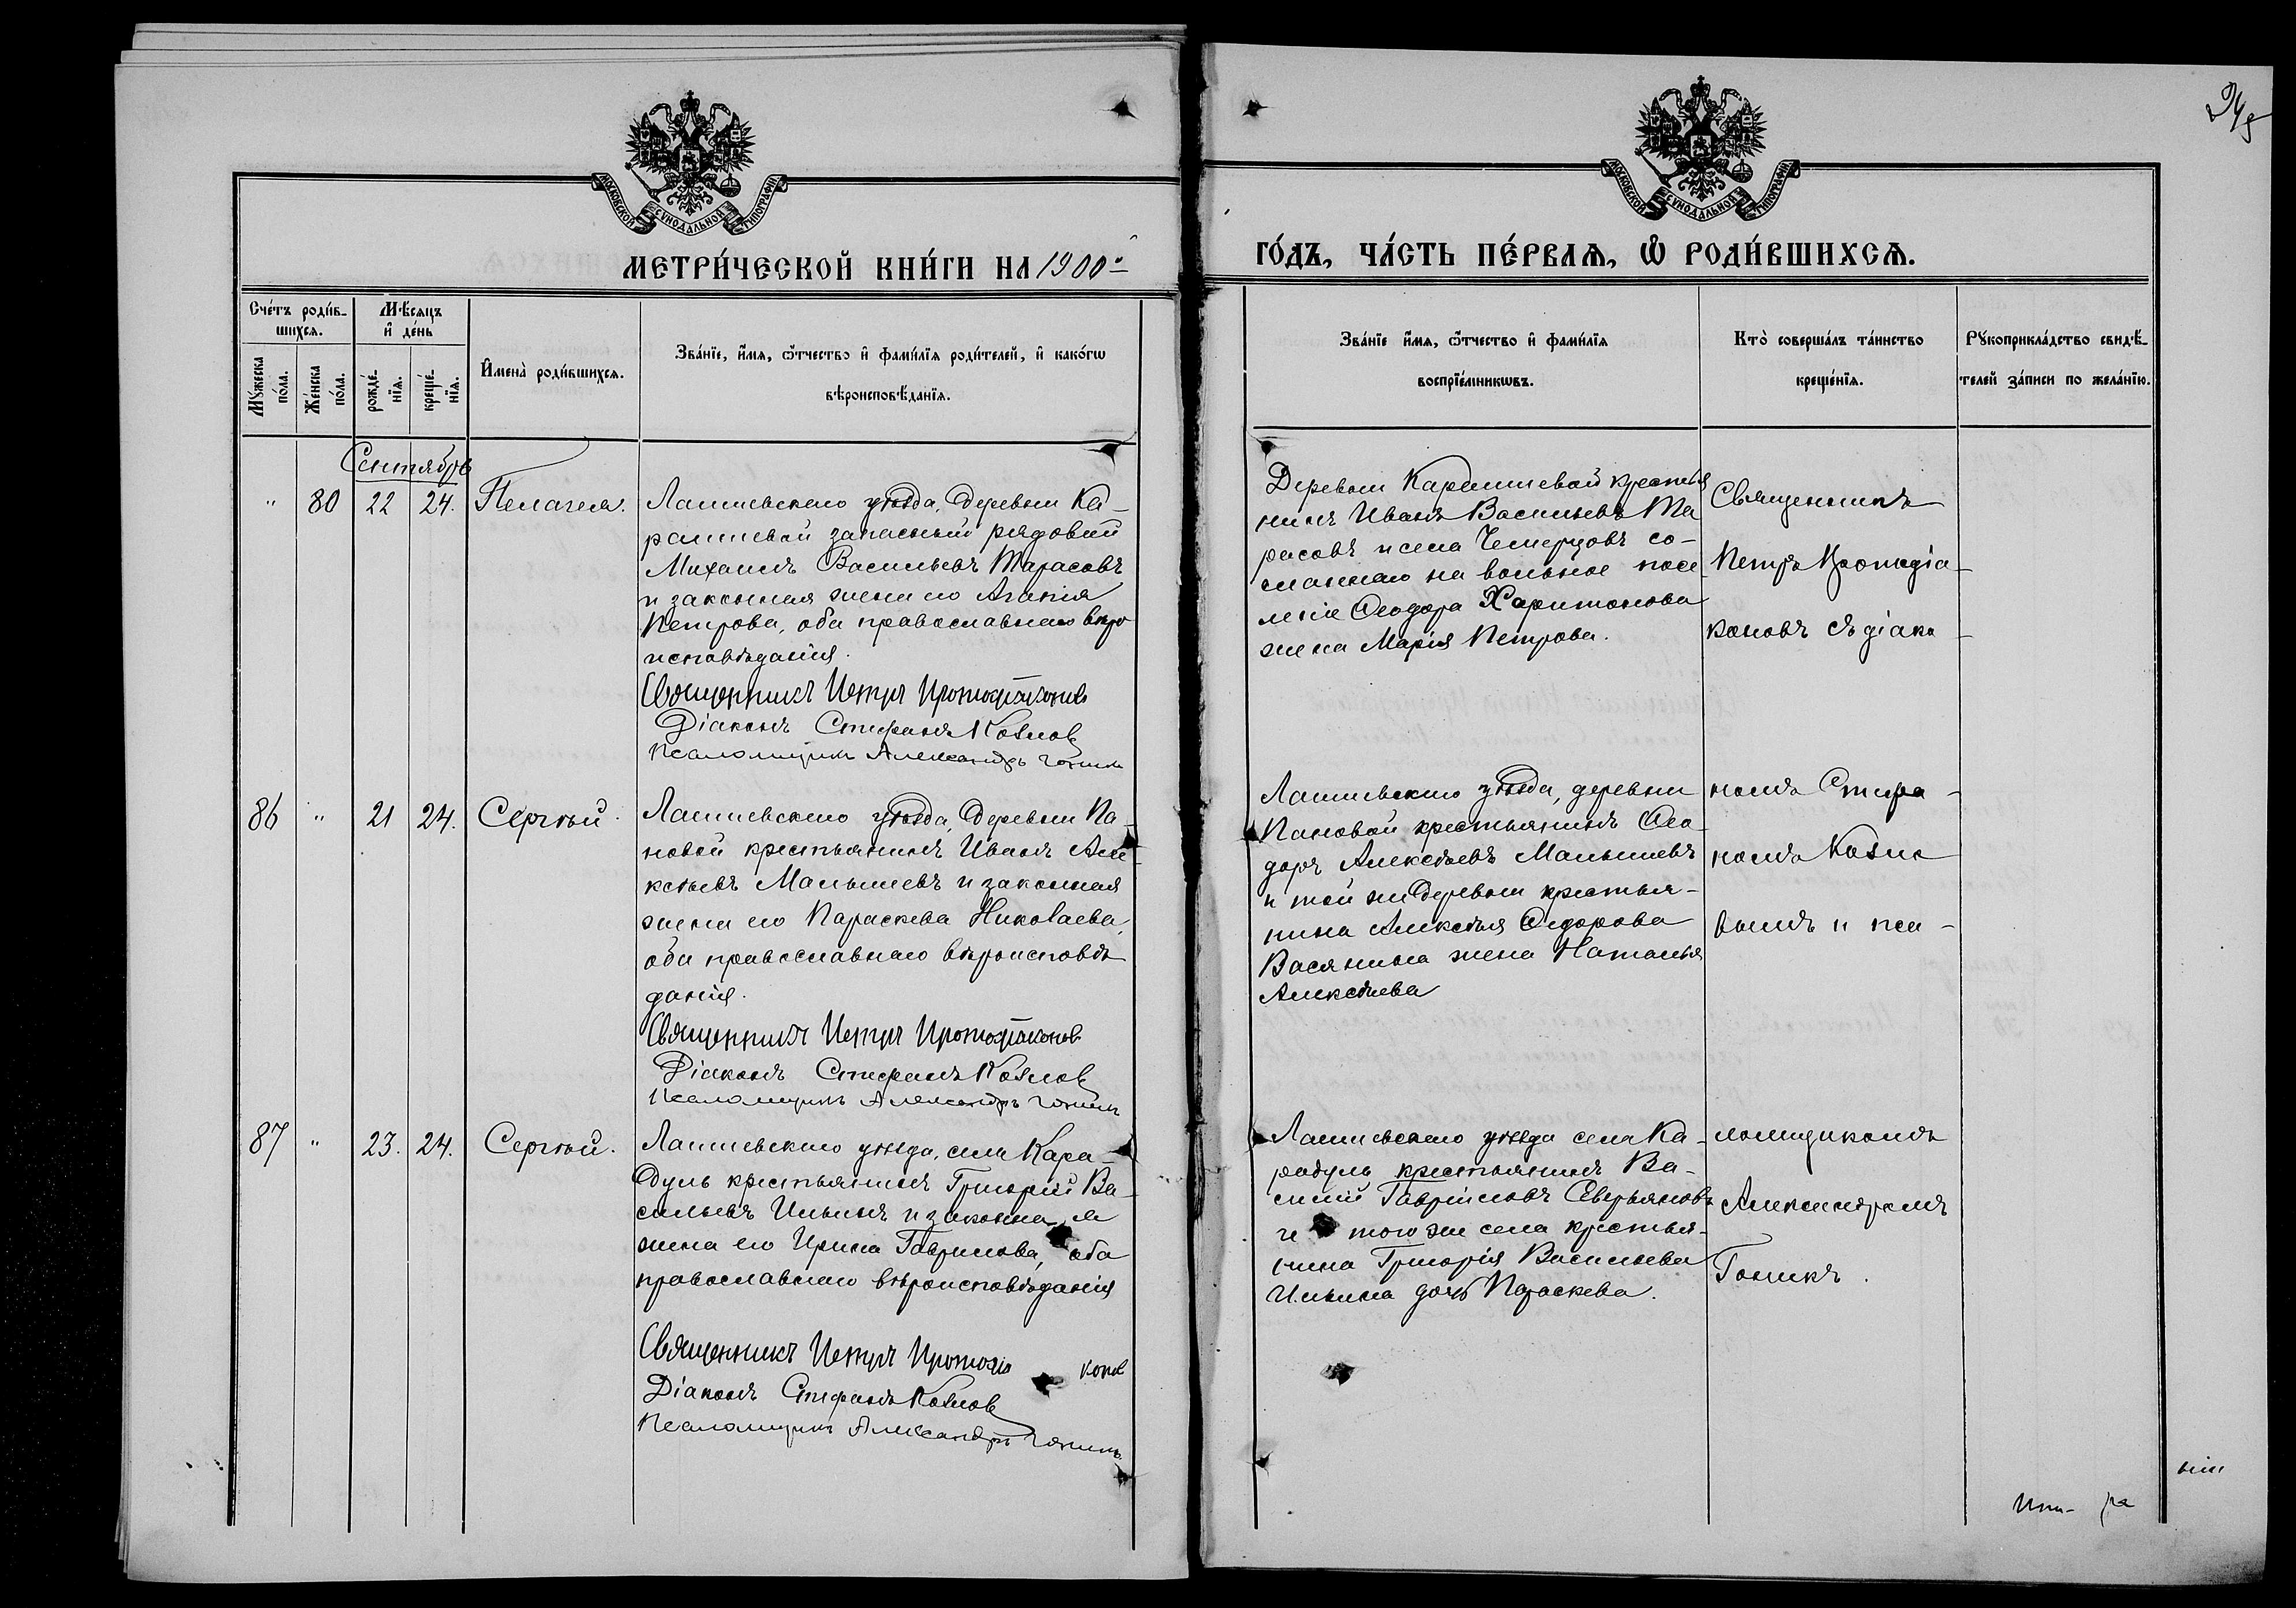 245
МОСКОВСКОЙ СѴНОДАЛЬНОЙ ТИПОГРАФІИ
МОСКОВСКОЙ СѴНОДАЛЬНОЙ ТИПОГРАФІИ
МЕТРИ́ЧЕСКОЙ КНИ́ГИ НА 1900й
ГО́ДЪ, ЧА́СТЬ ПЕ́РВАѦ, Ѡ҆ РОДИ́ВШИХСѦ.
Сче́тъ роди́в-
шихсѧ.
Мꙋ́жеска
по́ла.
Же́нска
по́ла.
Мѣ́сѧцъ
и҆ де́нь
рожде́-
нїѧ.
креще́-
нїѧ.
И҆мена̀ роди́вшихсѧ.
Зва́нїе, и҆́мѧ, ѻ҆́тчество и҆ фами́лїѧ роди́телей, и҆ како́гѡ
вѣроисповѣ́данїѧ.
Зва́нїе и҆́мѧ, ѻ҆́тчество и҆ фами́лїѧ
воспрїе́мникѡвъ.
Кто̀ соверша́лъ та́инство
креще́нїѧ.
Рꙋкоприкла́дство свидѣ́-
телей за́писи по жела́нїю.
Сентябрь
" 80 22 24. Пелагея.
Лаишевскаго уѣзда, деревни Ка-
рашевой запасный рядовой
Михаилъ Васильевъ Тарасовъ
и законная жена его Агапія
Петрова, оба православнаго вѣро
исповѣданія.
Священникъ Петръ Протодіаконов
Діаконъ Стефанъ Козлов
Псаломщикъ Александръ Гоникъ
Деревни Карашевой крестья
нинъ Иванъ Васильевъ Та
расовъ и села Чемерцовъ со-
сланнаго на вольное посе-
леніе Ѳеодора Харитонова
жена Марія Петрова.
Священникъ
Петръ Протодіа-
коновъ съ діако-
86 " 21 24. Сергѣй.
Лаишевскаго уѣзда, деревни Па-
новой крестьянинъ Иванъ Але-
ксѣевъ Малышевъ и законная
жена его Параскева Николаева,
оба православнаго вѣроисповѣ
данія.
Священникъ Петръ Протодіаконов
Діаконъ Стефанъ Козлов
Псаломщикъ Александръ Гоникъ
Лаишевскаго уѣзда, деревни
Пановой крестьянинъ Ѳео-
доръ Алексѣевъ Малышевъ
и той же деревни крестья-
нина Алексѣя Ѳедорова
Васянина жена Наталья
Алексѣева
номъ Стефа-
номъ Козло
вымъ и пса-
87 " 23. 24. Сергѣй.
Лаишевскаго уѣзда, села Кара-
дуль крестьянинъ Григорій Ва-
сильевъ Ильинъ и законна я
жена его Ирина Гаврилова, оба
православнаго вѣроисповѣданія
Священникъ Петръ Протодіа конов
Діаконъ Стефанъ Козлов
Псаломщикъ Александръ Гоникъ
Лаишевскаго уѣзда села Ка-
радуль крестьянинъ Ва-
силій Гавриловъ Северьяновъ
и того же села крестья-
нина Григорія Васильева
Ильина дочь Параскева.
ломщикомъ
Александромъ
Гоникъ.